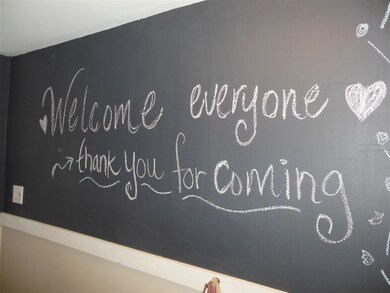 Welcome everyone
thank you for coming